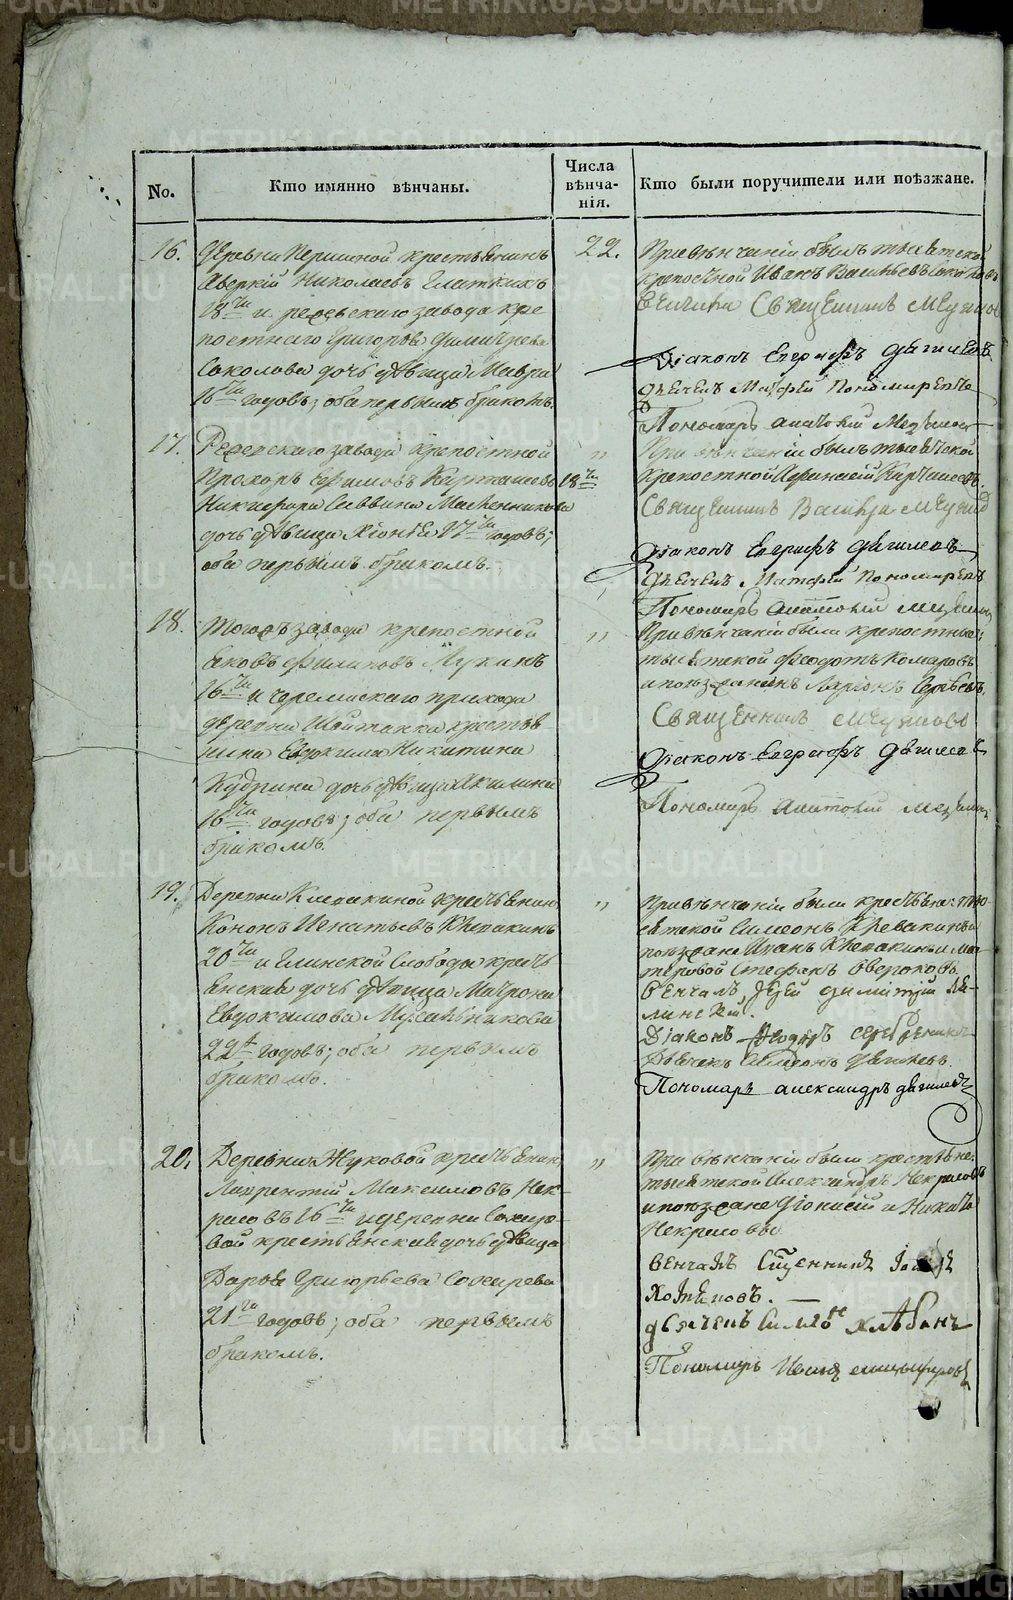 No.
Кто имянно вѣнчаны.
Числа
вѣнча-
нія.
Кто были поручители или поѣзжане.
16.
Деревни Першиной крестьянинъ
Аверкій Николаевъ Глаткихъ
18ти и режевскаго завода кре
постнаго Григорья Димитріева
Соколова дочь дѣвица Мавра
16ти годовъ; оба первымъ бракомъ.
22.
При вѣнчаніи былъ тысяткой
крепостной Иванъ Васильевъ Соколовъ
Священникъ
Діаконъ Евграфъ Дягилевъ
Дьячекъ Матфей Пономаревъ
Пономарь
17.
Режевскаго завода крепостной
Прохоръ Ефимовъ Карташевъ 18ти
Никифора Саввина Масленникова
дочь дѣвица Хіонія 17ти годовъ;
оба первымъ бракомъ.
"
При вѣнчаніи былъ тысяткой
крепостной Афанасій Карташевъ.
Священникъ
Діаконъ Евграфъ Дягилевъ
Дьячекъ Матфей Пономаревъ
Пономарь
18.
Тогожъ завода крепостной
Яковъ Филиповъ Мукинъ
16ти и черемисскаго прихода
деревни Шайтанки крестья-
нина Евдокима Никитина
Кудрина дочь дѣвица Акилина
16ти годовъ; оба первымъ
бракомъ.
"
При вѣнчаніи были крепостные:
тысяткой Феодотъ Комаровъ
и поезжанинъ Ларіонъ Сергѣевъ.
Священникъ
Діаконъ Евграфъ Дягилевъ
Пономарь
19.
Деревни Клевакиной крестьянинъ
Кононъ Игнатьевъ Клевакинъ
20ти и Глинской Слободы кресть
янская дочь дѣвица Матрона
Евдокимова Мусальникова
22х годовъ; оба первымъ
бракомъ.
"
При вѣнчаніи были крестьяне: тыс-
яткой Симеонъ Клевакинъ и
поезжане Иванъ Клевакинъ и Ма-
Стефанъ
Венчалъ Іерей Димитрій Бѣ-
линскій.
Діаконъ Феодоръ Серебрениковъ
Дьячекъ Симеонъ Дягилевъ.
Пономарь Александръ Дягилевъ
20.
Деревни Жуковой крестьянинъ
Лаврентій Максимовъ Нек-
расовъ 26ти и деревни Сохар-
вой крестьянская дочь дѣвица
Дарья Григорьева Сохарева
21го годовъ; оба первымъ
бракомъ.
"
При вѣнчаніи были крестьяне:
тысяткой Александръ Некрасовъ
и поезжане Діонисій и Никита
Некрасовы
Венчалъ Священникъ
Хотяновъ.
Дьячекъ Симеонъ Хлѣбинъ
Пономарь Иванъ
METRIKI.GASO-URAL.RU